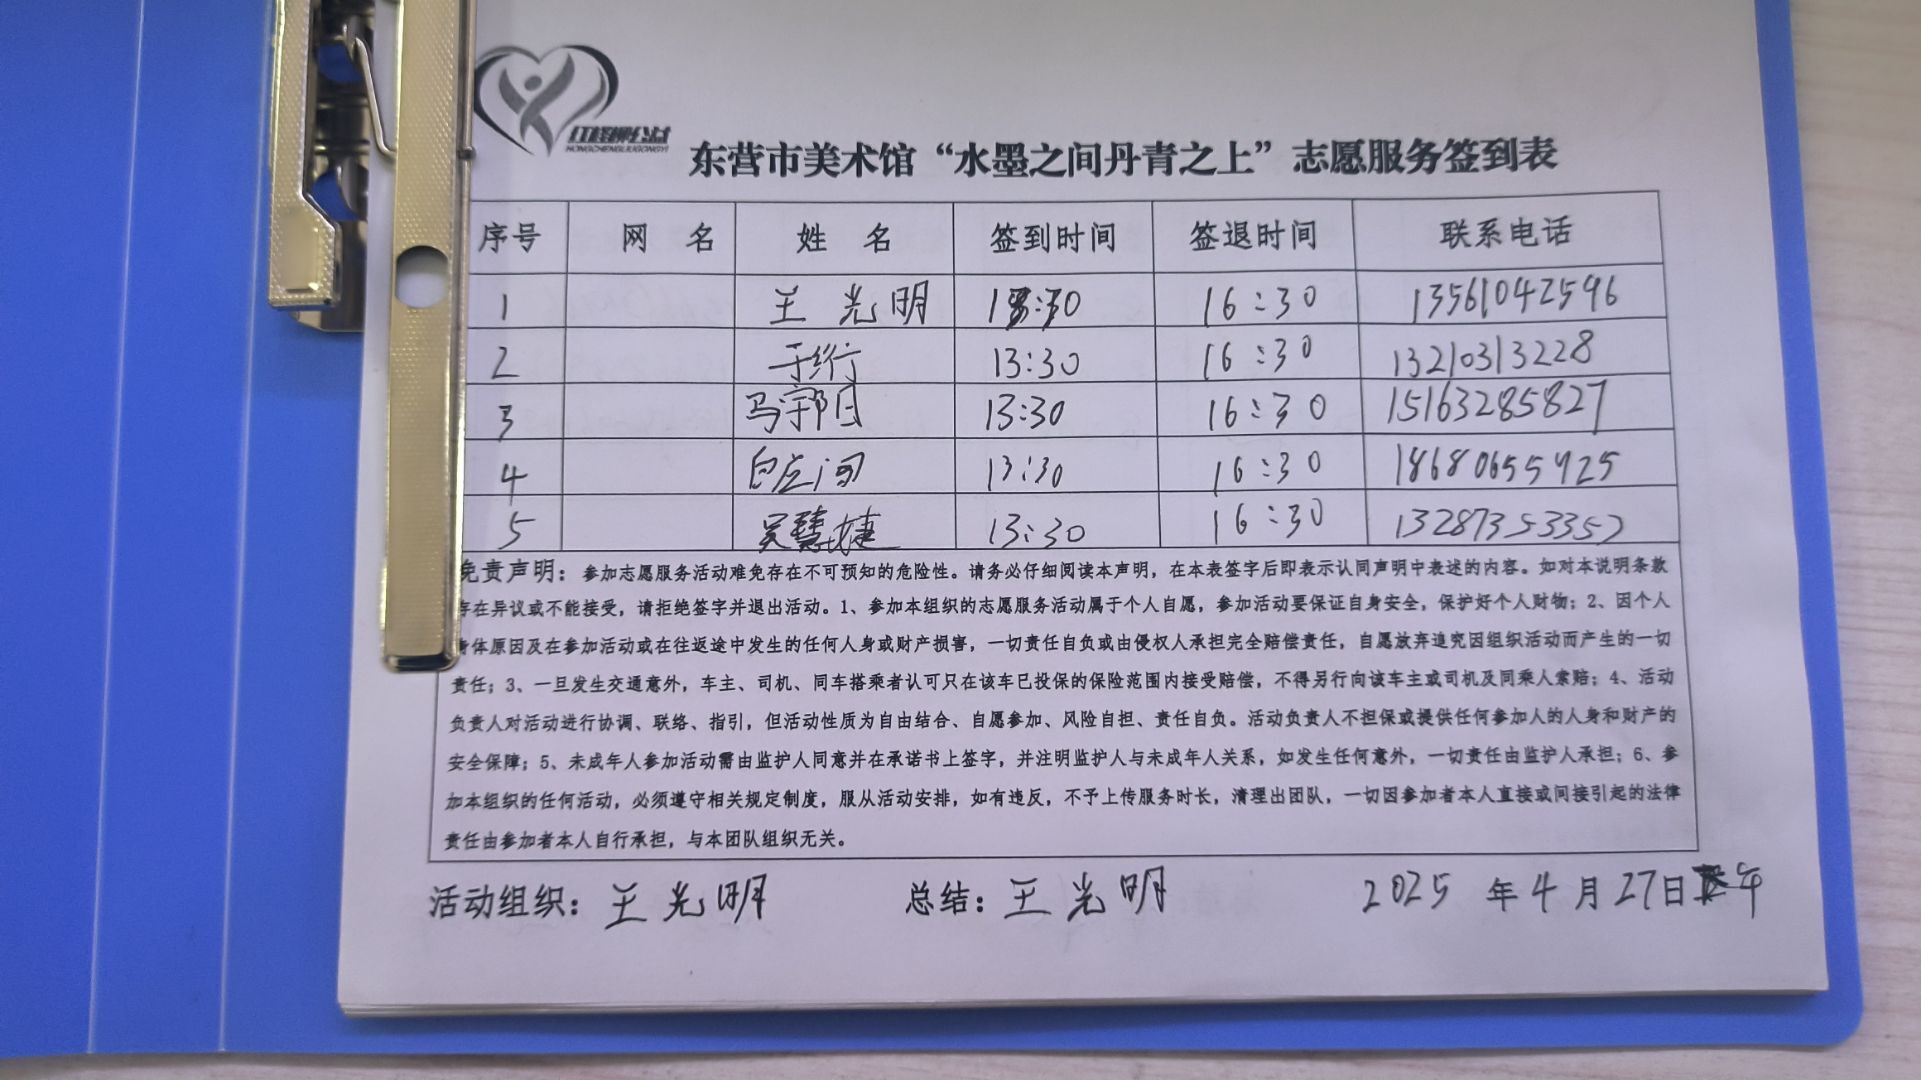 红柽柳公益
HONGCHENGLIUGONGYI
东营市美术馆“水墨之间丹青之上”志愿服务签到表
序号 网 名 姓 名 签到时间 签退时间 联系电话
1 王光明 13:30 16:30 13561042596
2 于绗 13:30 16:30 13210313228
3 马宇阳 13:30 16:30 15163285827
4 13:30 16:30 18680655925
5 吴慧婕 13:30 16:30 13287353357
免责声明：参加志愿服务活动难免存在不可预知的危险性。请务必仔细阅读本声明，在本表签字后即表示认同声明中表述的内容。如对本说明条款
存在异议或不能接受，请拒绝签字并退出活动。1、参加本组织的志愿服务活动属于个人自愿，参加活动要保证自身安全，保护好个人财物；2、因个人
身体原因及在参加活动或在往返途中发生的任何人身或财产损害，一切责任自负或由侵权人承担完全赔偿责任，自愿放弃追究因组织活动而产生的一切
责任；3、一旦发生交通意外，车主、司机、同车搭乘者认可只在该车已投保的保险范围内接受赔偿，不得另行向该车主或司机及同乘人索赔；4、活动
负责人对活动进行协调、联络、指引，但活动性质为自由结合、自愿参加、风险自担、责任自负。活动负责人不担保或提供任何参加人的人身和财产的
安全保障；5、未成年人参加活动需由监护人同意并在承诺书上签字，并注明监护人与未成年人关系，如发生任何意外，一切责任由监护人承担；6、参
加本组织的任何活动，必须遵守相关规定制度，服从活动安排，如有违反，不予上传服务时长，清理出团队，一切因参加者本人直接或间接引起的法律
责任由参加者本人自行承担，与本团队组织无关。
活动组织：王光明 总结：王光明 2025年4月27日下午